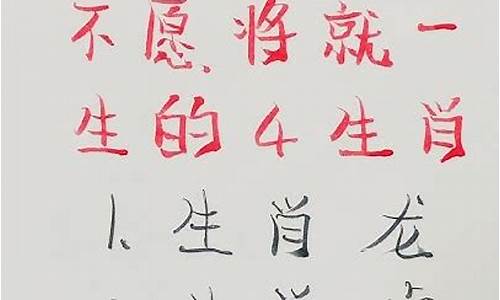 不愿将就一
生的4生肖
1、生肖龙
生肖